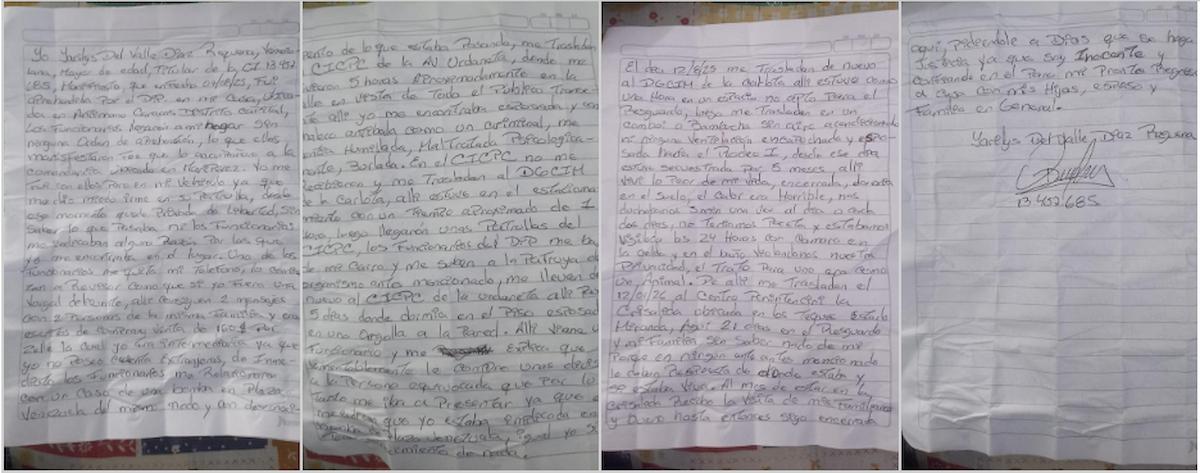 Yo Yarelys Del Valle Díaz Requena, Venezo
lana, Mayor de edad, Titular de la CI 13 452
685, Manifiesto, que en fecha 07/08/25, Fui
aprehendida Por el DIP en mi casa, ubica-
da en Antímano Caracas Distrito Capital,
Los Funcionarios llegaron a mi hogar sin
ninguna Orden de aprehensión, lo que ellos
manifestaron Fue que lo acompañara a la
comandancia ubicada en Maripérez. Yo me
Fui con ellos Pero en mi Vehículo ya que
me dio miedo irme en su Patrulla, desde
ese momento quede Privada de Libertad, sin
Saber lo que Pasaba ni los Funcionarios
me indicaban alguna Razón Por las que
yo me encontraba en el lugar. Uno de los
Funcionarios me quito mi Telefono, lo comen-
zan a Revisar como que si yo Fuera una
Vulgar delincuente, alli consiguen 2 mensajes
con 2 Personas de la misma Familia y era
escritos de compra y venta de 160$ Por
Zelle la cual yo era intermediaria ya que
yo no Poseo cuenta Extranjera, de Inme-
diato los Funcionarios me Relacionaron
con un caso de una bomba en Plaza
Venezuela del mismo modo y aun desconoci-
miento de lo que estaba Pasando, me Trasladan
CICPC de la AV Urdaneta, donde me
5 horas aproximadamente en la
en vista de Todo el Publico Transe-
alli yo me encontraba esposada y con
como un criminal, me
Humillada, Maltratada Psicologica-
mente, Burlada. En el CICPC no me
Recibieron y me Trasladan al DGCIM
de la Carlota, alli estuve en el estaciona
miento con un Tiempo aproximado de 1
hora, luego llegaron unas Patrullas del
CICPC, los Funcionarios del DIP me ba
de mi Carro y me suben a la Patrulla de
organismo antes mencionado, me llevan de
nuevo al CICPC de la Urdaneta alli Pas
5 dias donde dormia en el Piso esposad
en una Argolla a la Pared. Alli viene u
Funcionario y me explica que
lamentablemente le compre unas divis
a la Persona equivocada que Por lo
Tanto me iba a Presentar ya que e
que yo estaba implicada en
Plaza Venezuela, igual yo si
cimiento de nada.
El dia 12/8/25 me Trasladan de nuevo
al DGCIM de la Carlota alli estuve como
una Hora en un espacio no apto Para el
Resguardo, luego me Trasladan en un
camion a sin aire acondicionado
ni ninguna Ventilación encapuchada y espo-
sada hasta el Rodeo I, desde ese dia
estuve secuestrada por 5 meses alli
Vivi lo Peor de mi vida, encerrada, dormia
en el Suelo, el calor era Horrible, nos
duchabamos Smin una vez al dia o cada
dos dias, no Teniamos Poceta y estabamos
Vigilada las 24 Horas con Camara en
la celda y en el baño Violandonos nuestra
Privacidad, el Trato Para uno era como
Un Animal. De alli me Trasladan el
12/01/26 al Centro Penitenciario la
Crisalida ubicada en los Teques Estado
Miranda, Aqui 21 dias en el Resguardo
y mi Familia sin Saber nada de mi
Porque en ningún ente antes mencionado
le daban Respuesta de donde estaba y
si estaba Viva. Al mes de estar en la
Crisalida Recibo la Visita de mis Familiares
y bueno hasta entonces sigo encerrada
aqui, Pidiendole a Dios que se haga
Justicia ya que soy Inocente y
confiando en el Para mi Pronto Regreso
a casa con mis Hijas, esposo y
Familia en General.
Yarelys Del Valle, Díaz Requena
13 452685